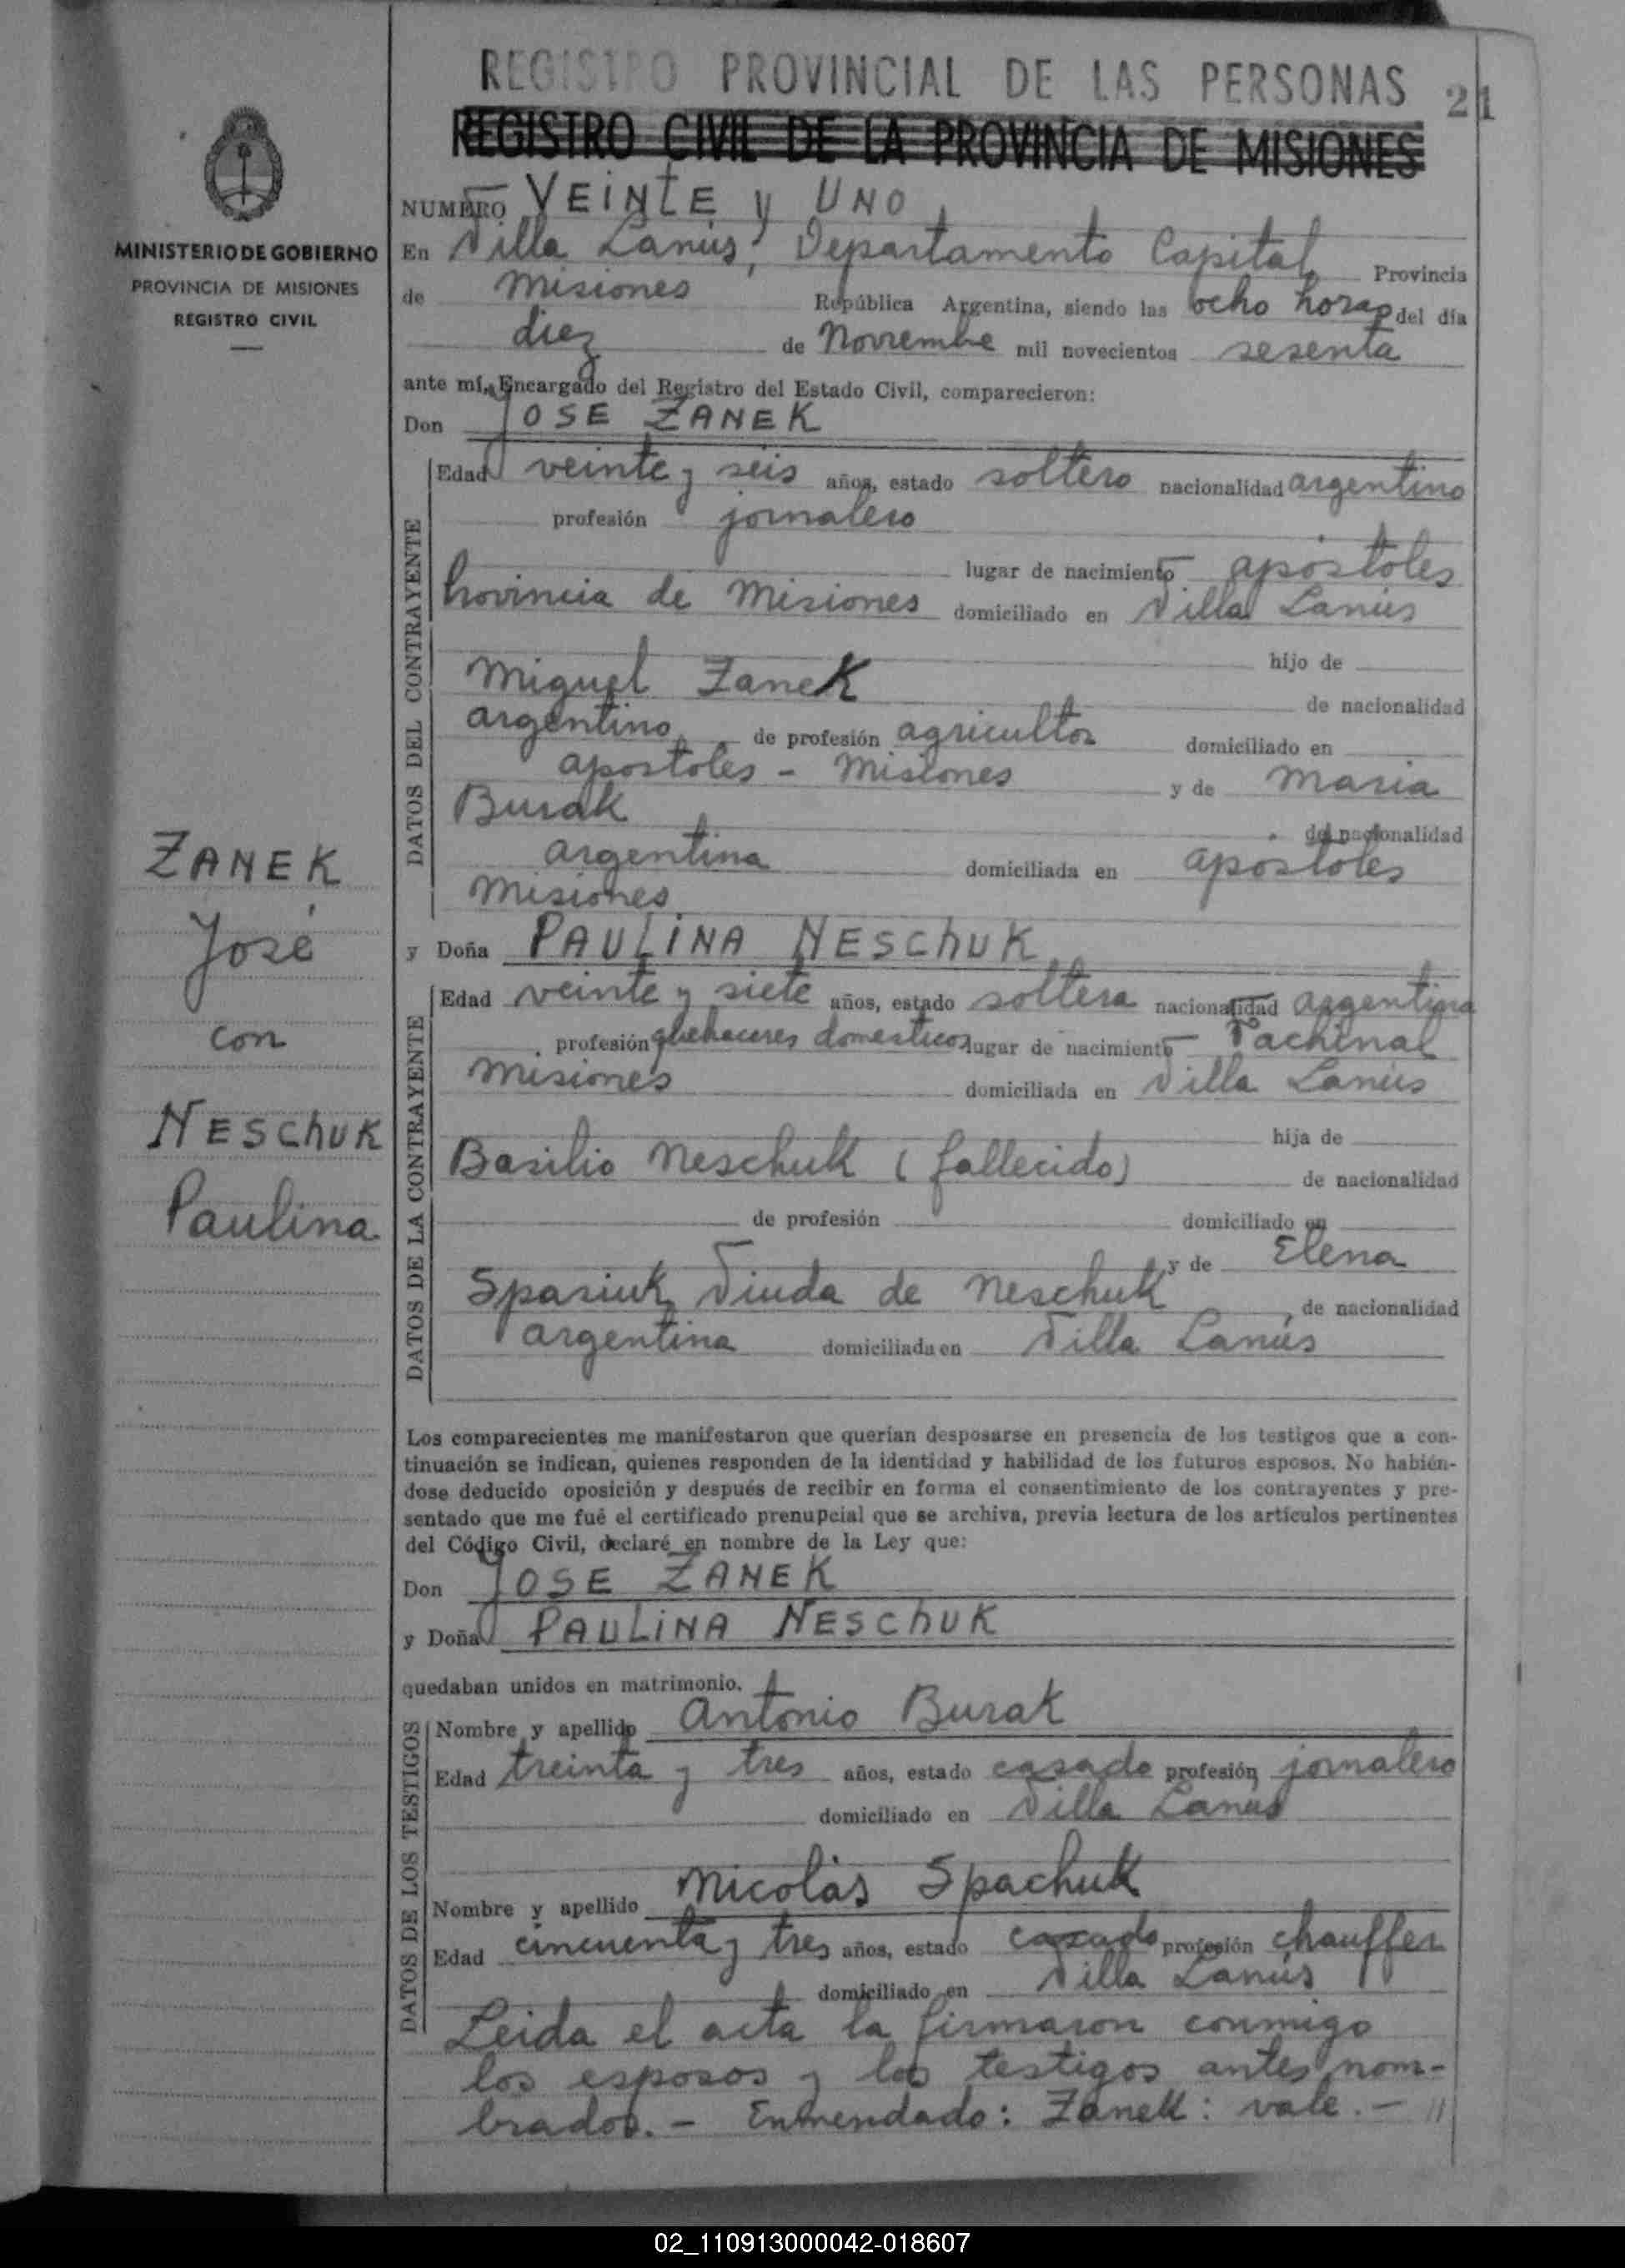 REGISTRO PROVINCIAL DE LAS PERSONAS 21
REGISTRO CIVIL DE LA PROVINCIA DE MISIONES
MINISTERIO DE GOBIERNO
PROVINCIA DE MISIONES
REGISTRO CIVIL
ZANEK
José
con
NESCHUK
Paulina
NUMERO VEINTE y UNO
En Villa Lanús, Departamento Capital Provincia
de Misiones República Argentina, siendo las ocho horas del día
diez de Noviembre mil novecientos sesenta
ante mí, Encargado del Registro del Estado Civil, comparecieron:
Don JOSE ZANEK
DATOS DEL CONTRAYENTE
Edad veinte y seis años, estado soltero nacionalidad argentino
profesión jornalero
lugar de nacimiento apóstoles
Provincia de Misiones domiciliado en Villa Lanús
hijo de
Miguel Zanek
de nacionalidad
argentino de profesión agricultor domiciliado en
apostoles - Misiones y de Maria
Burak
de nacionalidad
argentina domiciliada en apostoles
Misiones
y Doña PAULINA NESCHUK
DATOS DE LA CONTRAYENTE
Edad veinte y siete años, estado soltera nacionalidad argentina
profesión quehaceres domesticos lugar de nacimiento Pachinal
Misiones domiciliada en Villa Lanús
hija de
Basilio Neschuk (fallecido)
de nacionalidad
de profesión domiciliado en
y de Elena
Spasiuk Viuda de Neschuk
, de nacionalidad
argentina domiciliada en Villa Lanús
Los comparecientes me manifestaron que querían desposarse en presencia de los testigos que a con-
tinuación se indican, quienes responden de la identidad y habilidad de los futuros esposos. No habién-
dose deducido oposición y después de recibir en forma el consentimiento de los contrayentes y pre-
sentado que me fué el certificado prenupcial que se archiva, previa lectura de los artículos pertinentes
del Código Civil, declaré en nombre de la Ley que:
Don JOSE ZANEK
y Doña PAULINA NESCHUK
quedaban unidos en matrimonio.
DATOS DE LOS TESTIGOS
Nombre y apellido Antonio Burak
Edad treinta y tres años, estado casado profesión jornalero
domiciliado en Villa Lanus
Nombre y apellido Nicolás Spachuk
Edad cincuenta y tres años, estado casado profesión chauffer
domiciliado en Villa Lanús
Leida el acta la firmaron conmigo
los esposos y los testigos antes nom-
brados. - Enmendado: Zanek: vale. - //
02_110913000042-018607